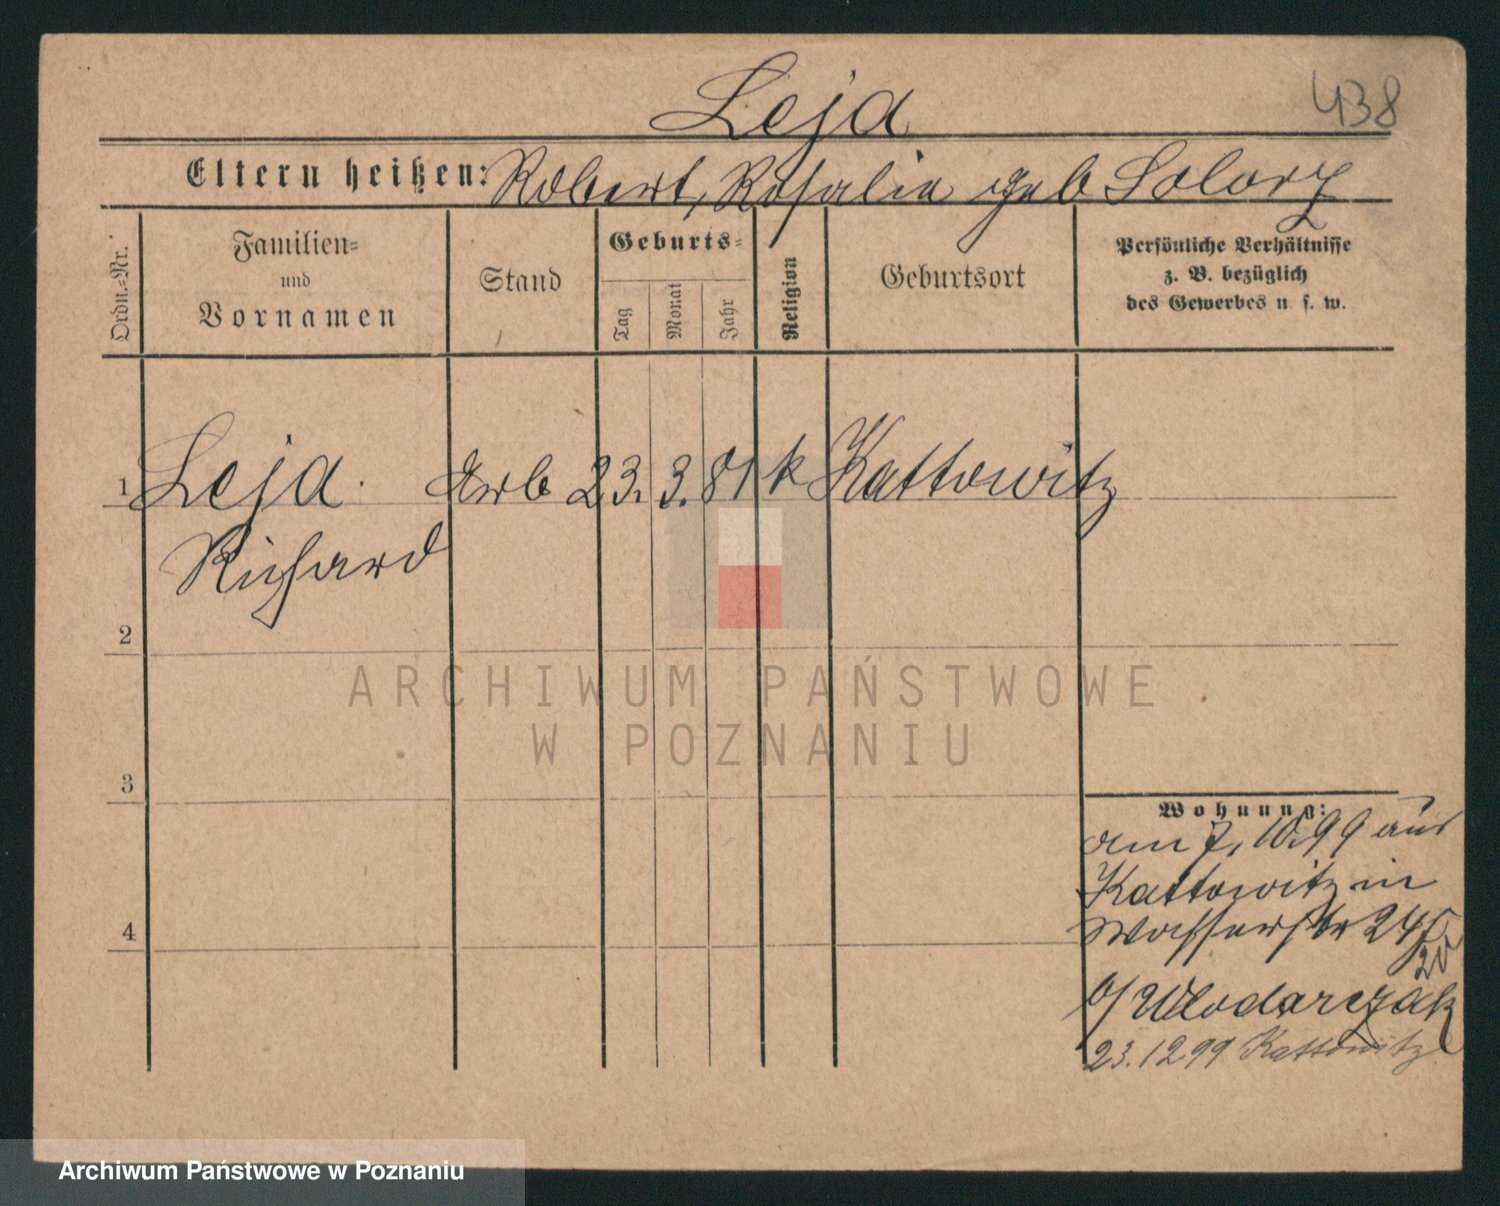 Leja
438
Eltern heißen: Robert, Rosalie geb Solorz
Ordn.-Nr.
Familien-
und
Vornamen
Stand
Geburts-
Tag
Monat
Jahr
Religion
Geburtsort
Persönliche Verhältnisse
z. B. bezüglich
des Gewerbes u. s. w.
1 Leja Arb 23. 3. 81 k Kattowitz
Richard
2
3
4
Wohnung:
am 7. 10. 99 aus
Kattowitz in
Wasserstr 24
b/ Wlodarczak
23. 12 99 Kattowitz
ARCHIWUM PAŃSTWOWE
W POZNANIU
Archiwum Państwowe w Poznaniu